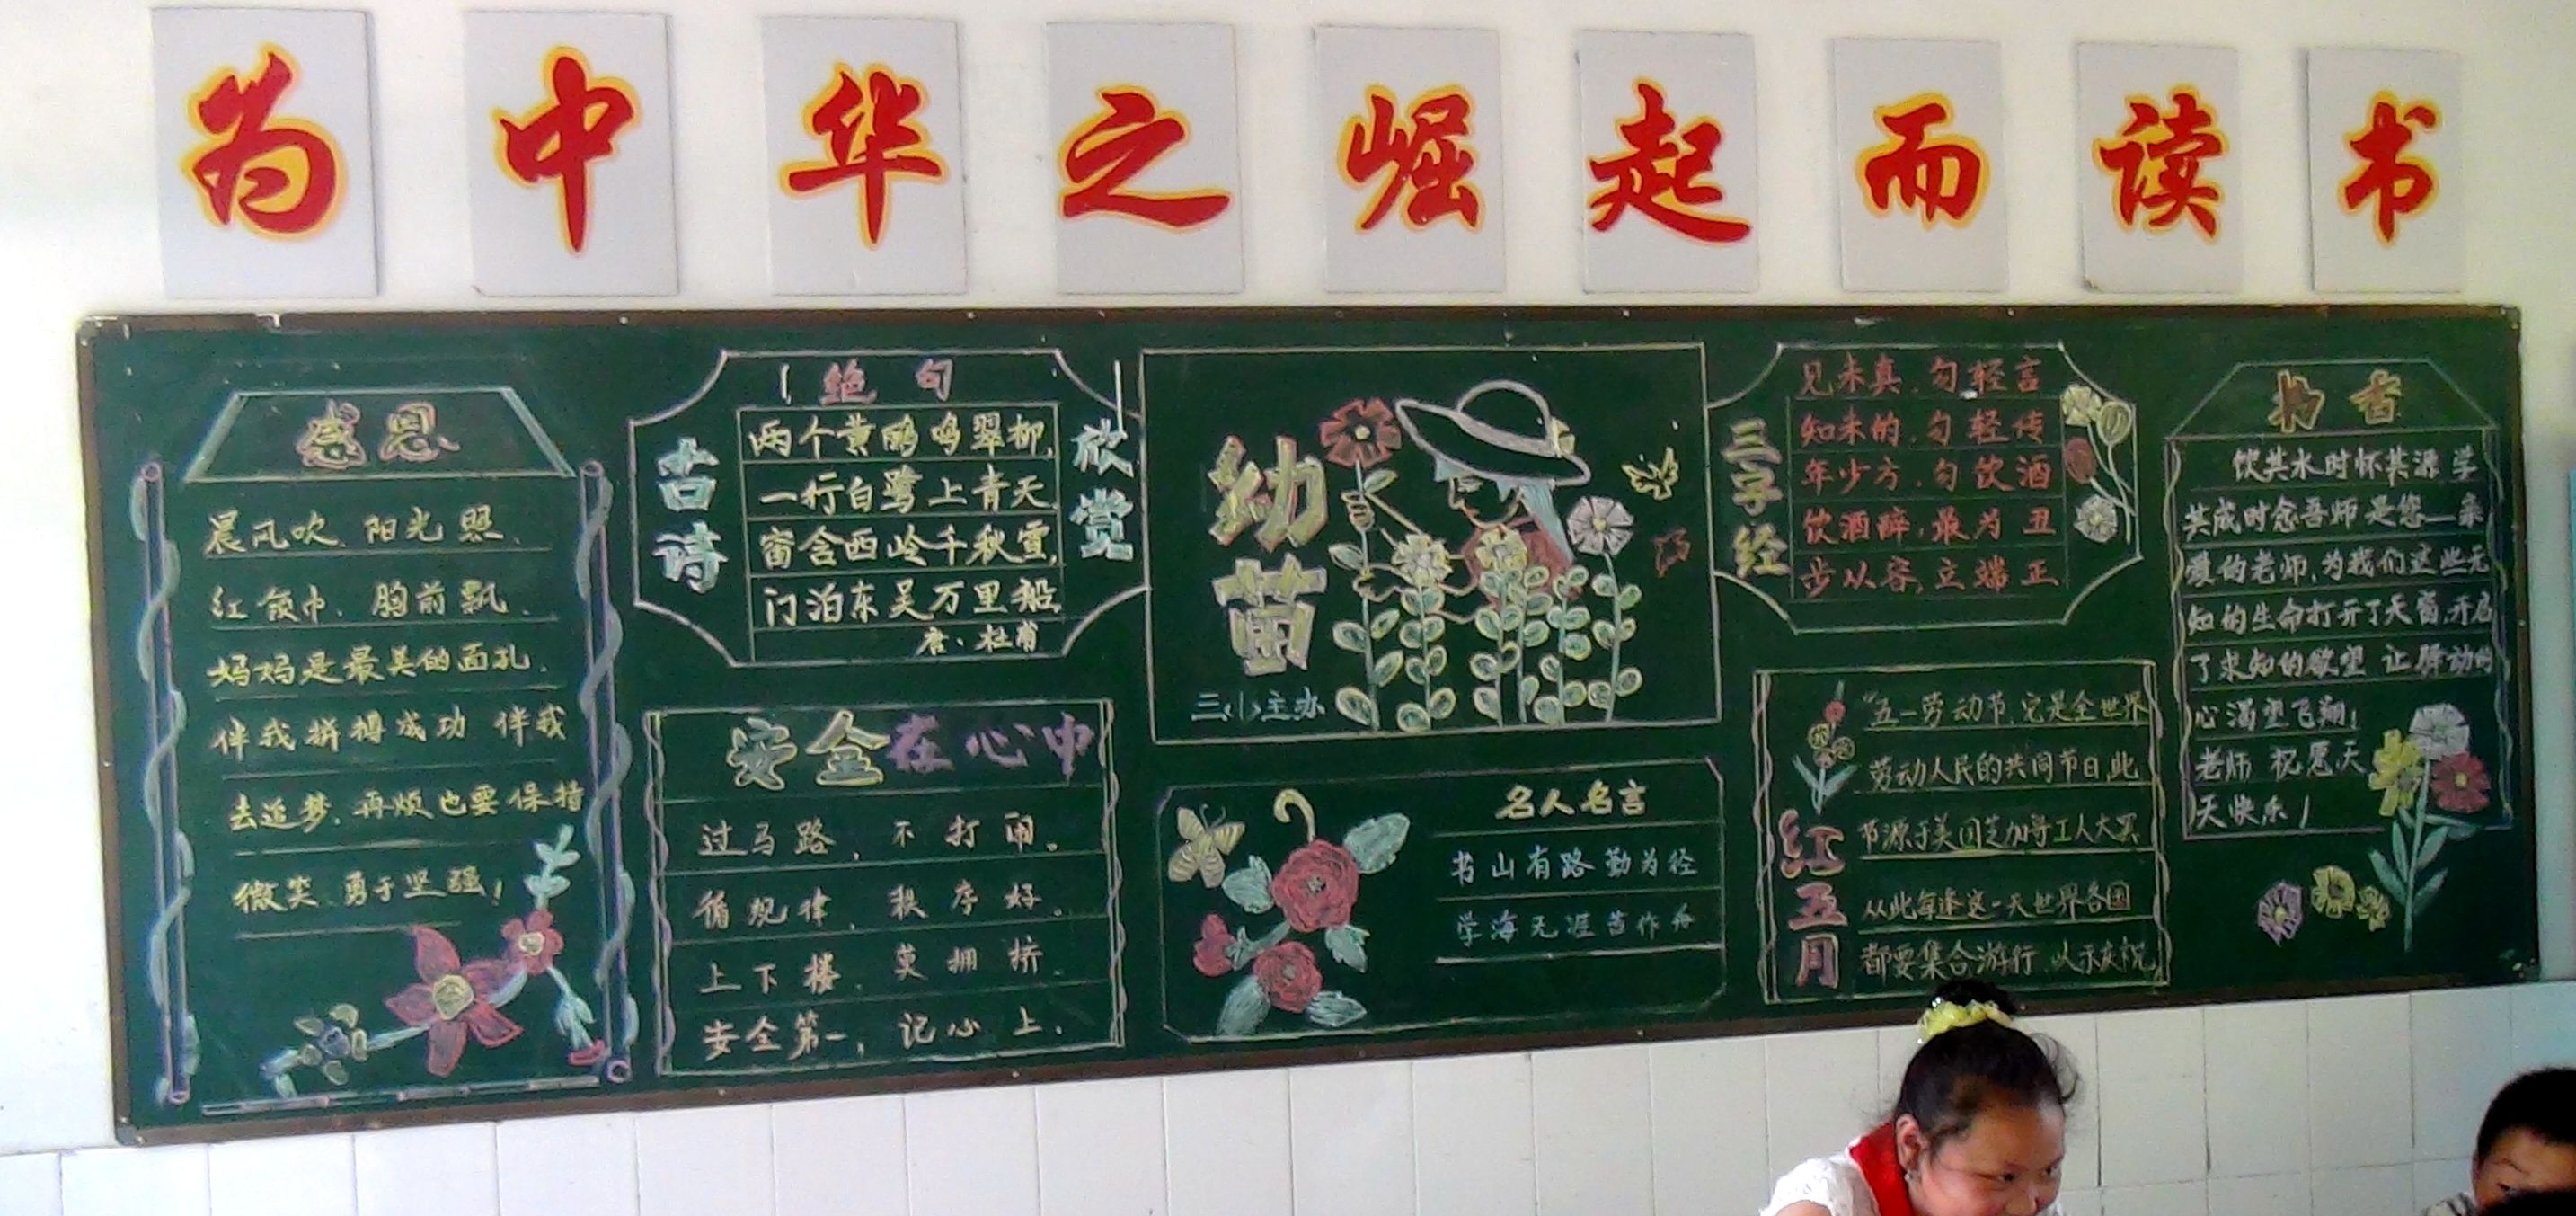 为中华之崛起而读书
感恩
晨风吹、阳光照、
红领巾、胸前飘、
妈妈是最美的面孔、
伴我拼搏成功 伴我
去追梦、再烦也要保持
微笑、勇于坚强！
绝句
古诗
欣赏
两个黄鹂鸣翠柳,
一行白鹭上青天
窗含西岭千秋雪,
门泊东吴万里船
唐·杜甫
安全在心中
过马路，不打闹。
循规律、秩序好。
上下楼、莫拥挤、
安全第一，记心上.
幼苗
三小主办
名人名言
书山有路勤为径
学海无涯苦作舟
三字经
见未真、勿轻言
知未的，勿轻传
年少方、勿饮酒
饮酒醉，最为丑
步从容，立端正
红五月
"五一劳动节、它是全世界
劳动人民的共同节日,此
节源于美国芝加哥工人大罢
从此每逢这一天世界各国
都要集合游行、以示庆祝
书香
饮其水时怀其源 学
其成时念吾师 是您—亲
爱的老师,为我们这些无
知的生命打开了天窗,开启
了求知的欲望 让驿动的
心渴望飞翔！
老师 祝愿天
天快乐！